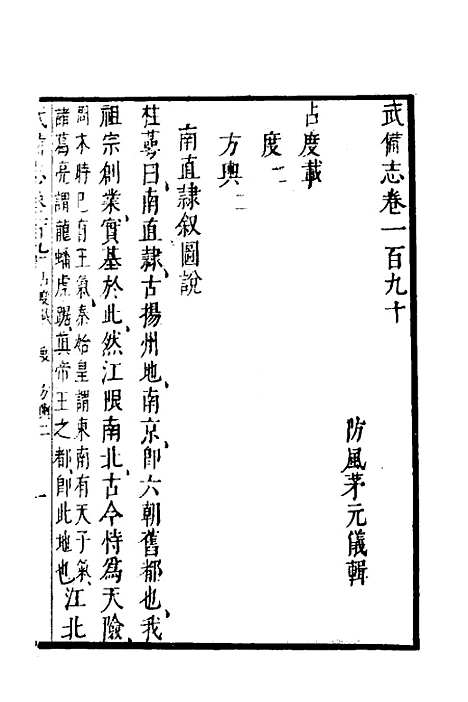 武備志卷一百九十
防風茅元儀輯
占度載
度二
方輿二
南直隷叙圖說
桂萼曰南直隷、古揚州地、南京、卽六朝舊都也、我
祖宗創業、實基於此、然江限南北、古今恃爲天險、
周末時已有王氣、秦始皇謂東南有天子氣、
諸葛亮謂龍蟠虎踞、眞帝王之都、卽此地也、江北
武備志 卷一百九十 占度載 度 方輿二 一